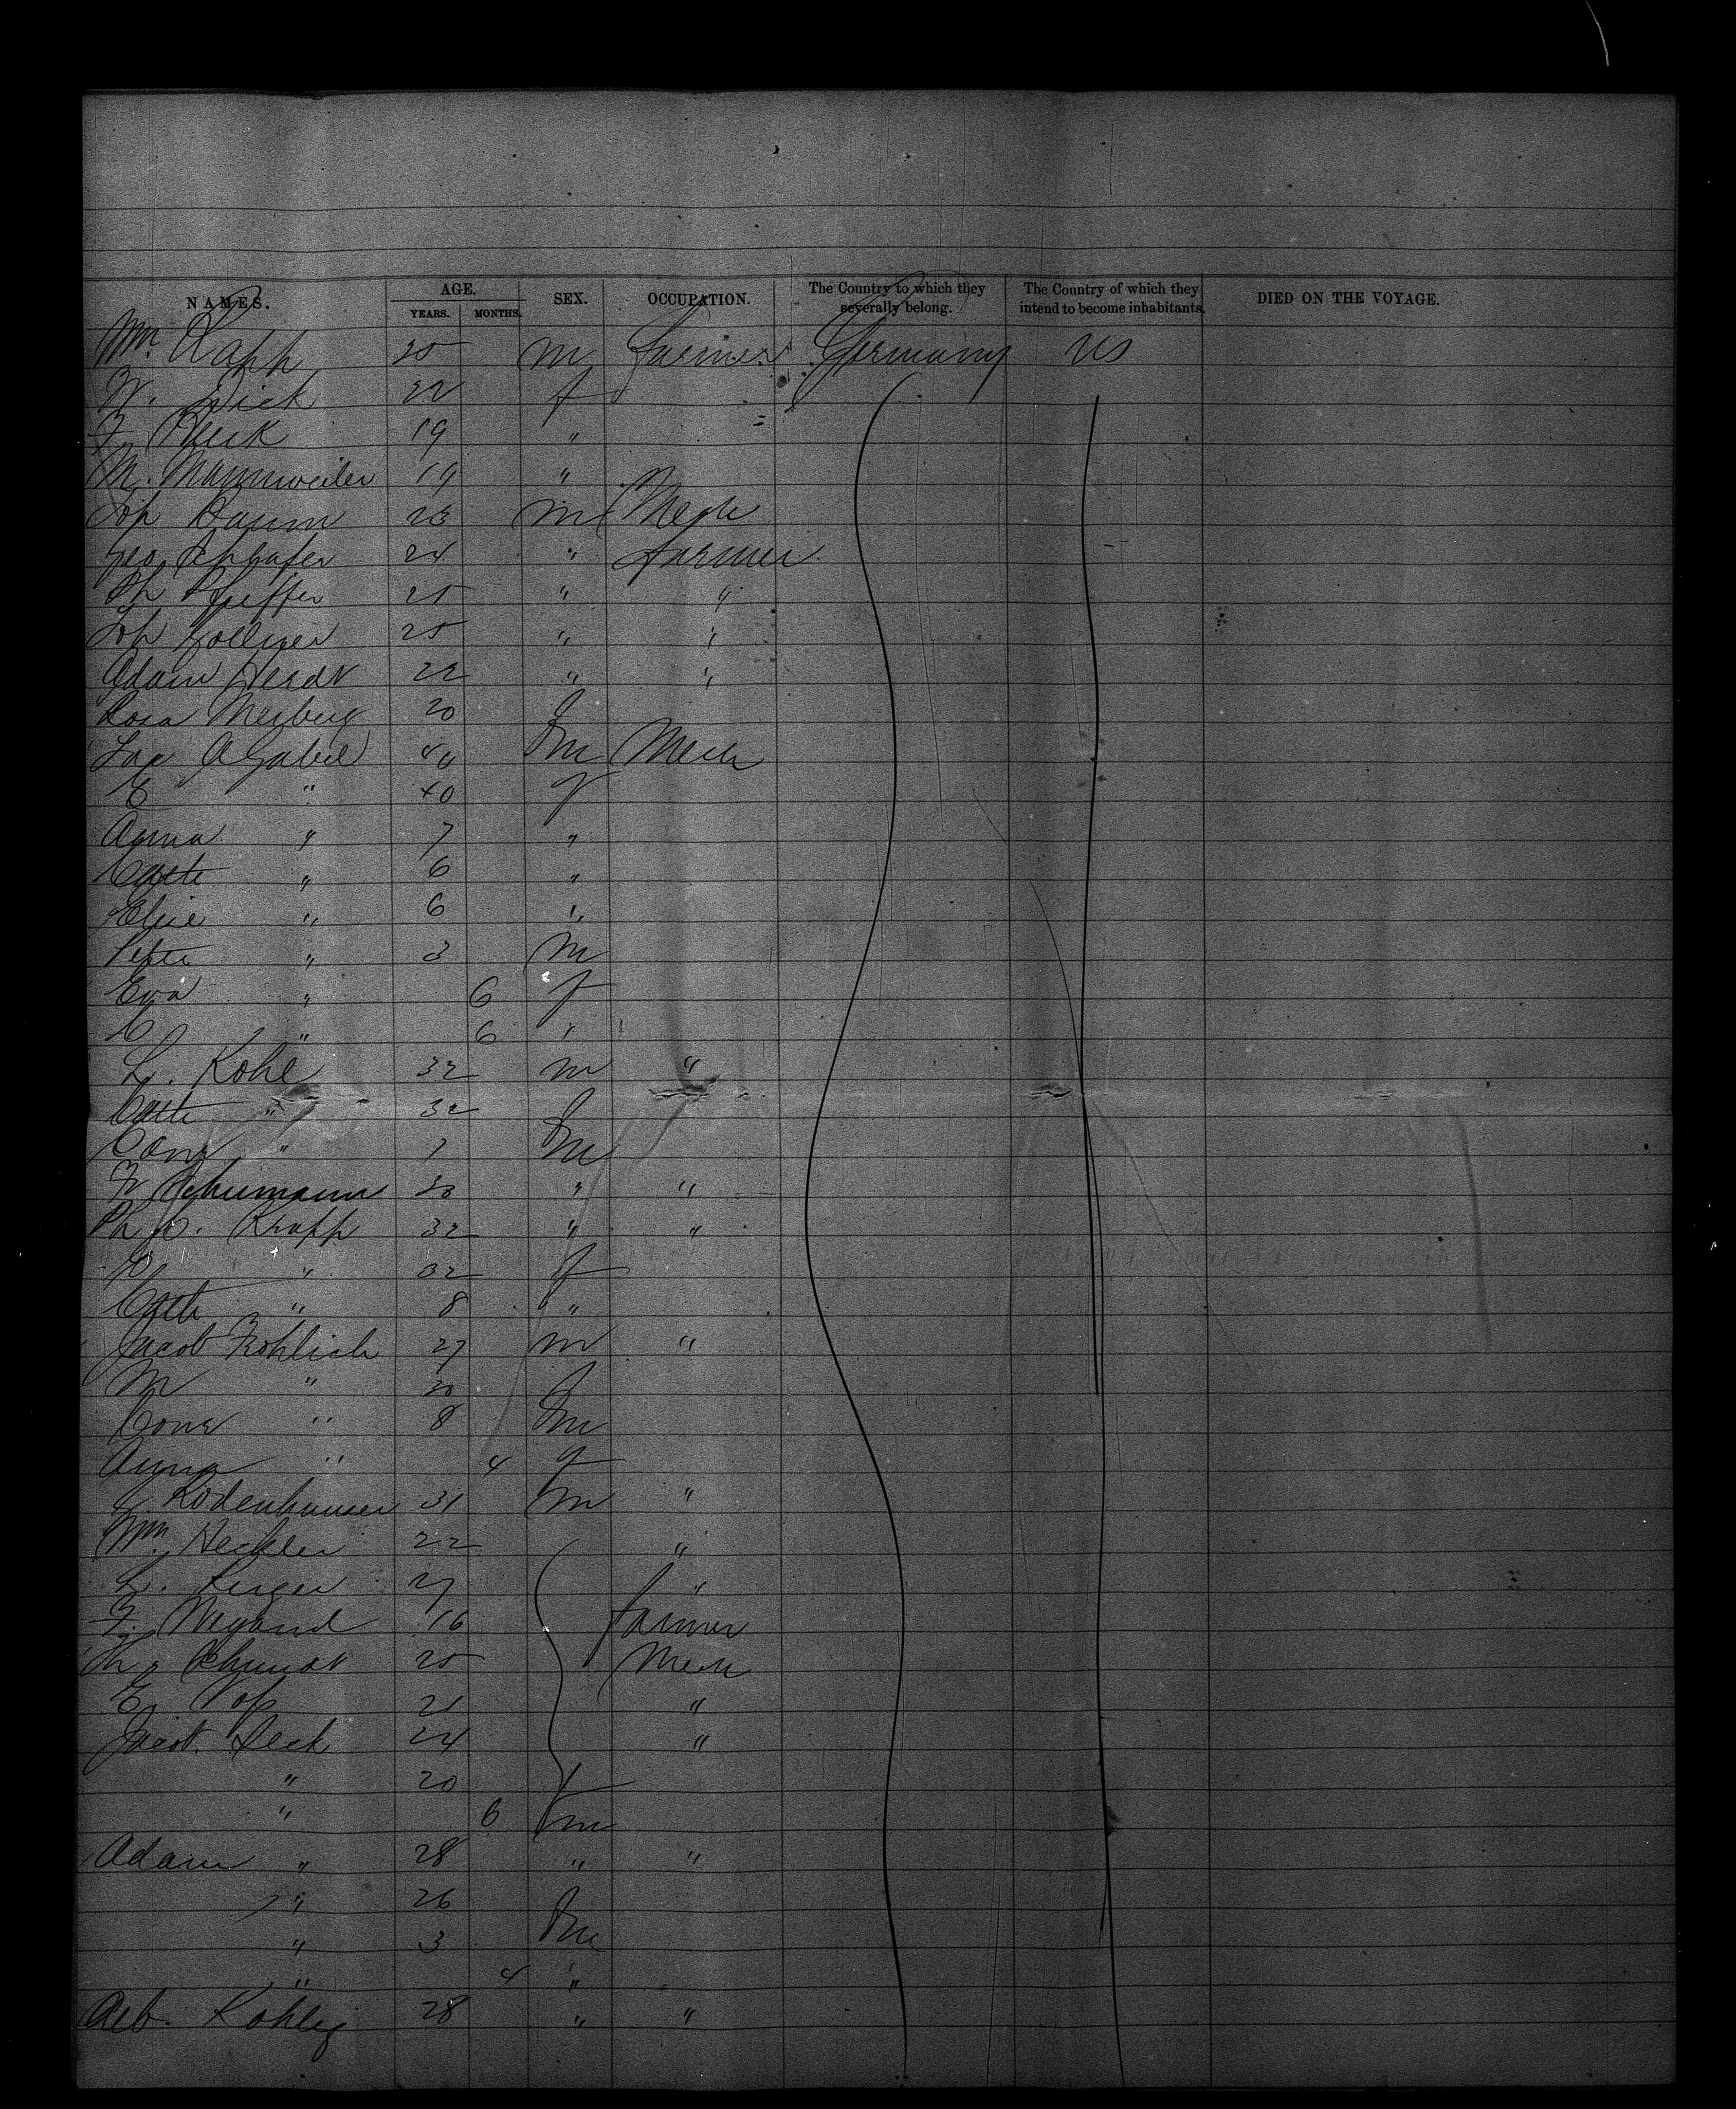 NAMES. AGE. YEARS. MONTHS. SEX. OCCUPATION. The Country to which they severally belong. The Country of which they intend to become inhabitants. DIED ON THE VOYAGE.
Wm. Rapp 20 m Farmer Germany US
Dick 22 f
F. Beck 19 "
M. Mannweiler 19 "
Joh Baum 23 m Mech
Geo. Schäfer 24 " Farmer
Ph Pfeiffer 25 " "
Joh Zollner 25 " "
Adam Herdt 22 " "
Rosa Merberg 20 f
A Gabel 40 m Mech
E " 40 f
Anna " 7 "
Cath " 6 "
Elise " 6 "
Peter " 3 m
Eva " 6 f
C " 6 "
L. Kohl 32 m "
Cath " 32 f
Conr " 7 m
Fr Schumann 30 " "
Ph Krapp 32 " "
" 32 f
Cath " 8 "
Jacob Frohlich 27 m "
M " 30 f
Conr " 8 m
Anna " 4 f
Rodenhauser 31 m "
Wm. Heckler 22 "
L. 27 "
F. Weyand 16 Farmer
Schmidt 20 Mech
E. 21 "
Jacob Seck 24 "
" 20 f
" 6 m
Adam " 28 " "
" 26 f
" 3 m
" 4 "
Alb. Kohley 28 " "